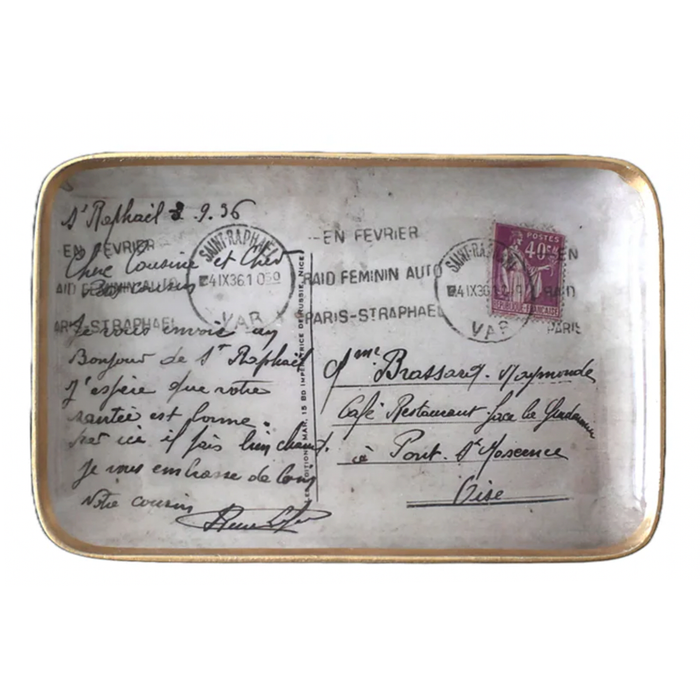 St Raphaël 2.9.36
Chère Cousine et Cher
Cousin
Je vous envoie un
Bonjour de St Raphaël
J'espère que votre
santée est bonne.
Par ici il fais bien chaud.
Je vous embrasse de loin
Votre cousin
SAINT-RAPHAEL
4 IX 36 1 0
VAR
EN FEVRIER
AID FEMININ AUTO
PARIS-STRAPHAEL
EN FEVRIER
RAID FEMININ AUTO
PARIS-STRAPHAEL
SAINT-RA
4 IX 36
VAR
EN
RAID
PARIS
POSTES
40c
MAR, 15 BD IMPERATRICE DE RUSSIE, NICE
Mme Brassart Raymonde
Café Restaurant face le Gendarmerie
à Pont-Ste Maxence
Oise